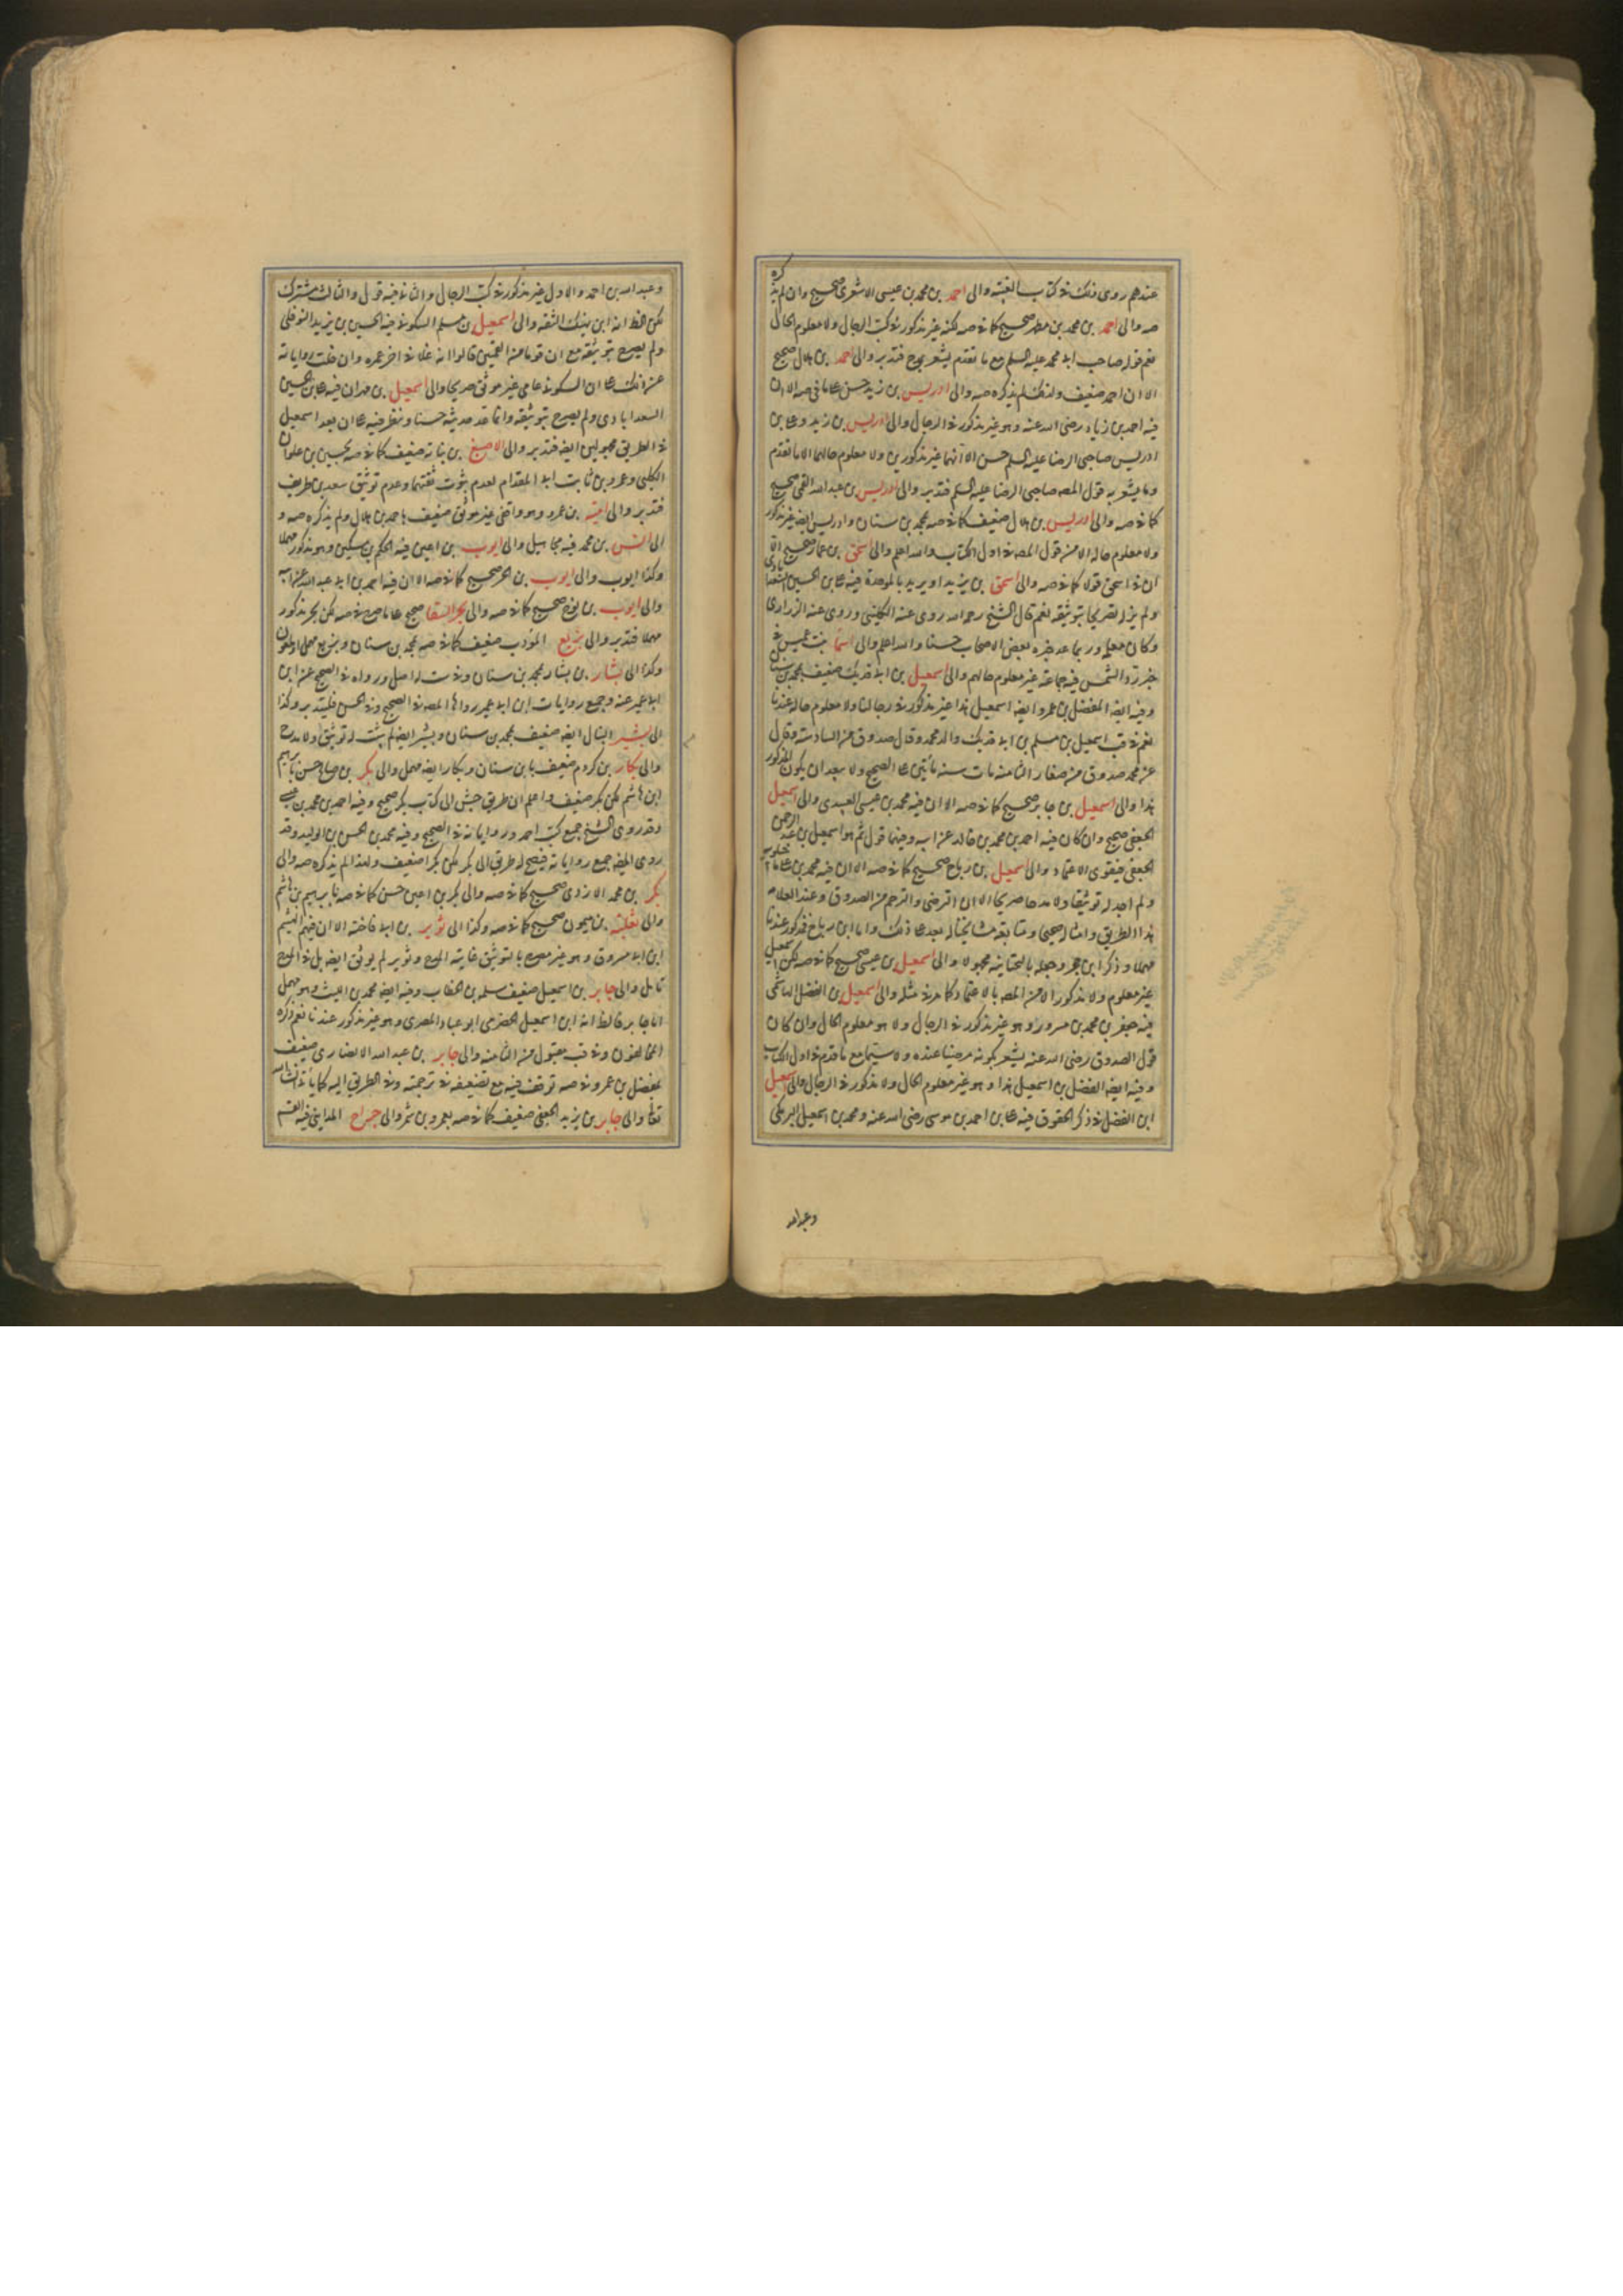 عندهم روى ذلك في كتاب الغيبة والى احمد بن محمد بن عيسى الاشعرى صحيح وان لم يذكره
صه والى احمد بن محمد بن مطهر صحيح كما في صه لكنه غير مذكور في كتب الرجال ولا معلوم الحال
نعم قوله صاحب ابى محمد عليه السلم مع ما تقدم يشعر بمدح فتدبر والى احمد بن هلال صحيح
الا ان احمد ضعيف ولذلك لم يذكره صه والى ادريس بن زيد حسن على ما في صه الا ان
فيه احمد بن زياد رضى الله عنه وهو غير مذكور في الرجال والى ادريس بن زيد وعلى بن
ادريس صاحبى الرضا عليه السلم حسن الا انهما غير مذكورين ولا معلوم حالهما الا ما تقدم
وما يشعر به قول المصه صاحبى الرضا عليه السلم فتدبر والى ادريس بن عبد الله القمى صحيح
كما في صه والى ادريس بن هلال ضعيف كما في صه بمحمد بن سنان وادريس ايضه غير مذكور
ولا معلوم حاله الا من قول المصه في اول الكتاب والله اعلم والى اسحق بن عمار صحيح الا
ان في اسحق قولا كما في صه والى اسحق بن يزيد او بريد بالموحدة فيه على بن الحسين السعدابادى
ولم يزل تصريحا بتوثيقه نعم قال الشيخ رحمه الله روى عنه الكلينى وروى عنه الزرارى
وكان معلمه وربما عد خبره بعض الاصحاب حسنا والله اعلم والى اسما بنت عميس في
خبر رد الشمس فيه جماعة غير معلوم حالهم والى اسمعيل بن ابى فديك ضعيف بمحمد بن سنان
وفيه ايضه المفضل بن عمر وايضه اسمعيل هذا غير مذكور في رجالنا ولا معلوم حاله عندنا
نعم في قب اسمعيل بن مسلم بن ابى فديك والد محمد وقال صدوق من السادسة وقال
عن محمد صدوق من صغار الثامنة مات سنة مأتين على الصحيح ولا يبعد ان يكون المذكور
هذا والى اسمعيل بن جابر صحيح كما في صه الا ان فيه محمد بن عيسى العبيدى والى اسمعيل
الجعفى صحيح وان كان فيه احمد بن محمد بن خالد عن ابيه وفيهما قول ثم هو اسمعيل بن عبد الرحمن
الجعفى فيقوى الاعتماد والى اسمعيل بن رباح صحيح كما في صه الا ان فيه محمد بن على ماجيلويه
ولم اجد له توثيقا ولا مدحا صريحا الا ان الترضى والترحم من الصدوق وعند العلامه
هذا الطريق وامثاله صحيحا ومتابعة مشايخنا له بعد على ذلك واما ابن رباح فمذكور عندنا
مهملا وذكر ابن حجر وجعله بالتحتانية مجهولا والى اسمعيل بن عيسى صحيح كما في صه لكن اسمعيل
غير معلوم ولا مذكور الا من المصه بالاعتماد كما مر في مثله والى اسمعيل بن الفضل الهاشمى
فيه جعفر بن محمد بن مسرور وهو غير مذكور في الرجال ولا هو معلوم الحال وان كان
قول الصدوق رضى الله عنه يشعر بكونه مرضيا عنده ولا سيما مع ما قدم في اول الكتاب
وفيه ايضه الفضل بن اسمعيل هذا وهو غير معلوم الحال ولا مذكور في الرجال والى اسمعيل
ابن الفضل في ذكر الحقوق فيه على بن احمد بن موسى رضى الله عنه ومحمد بن اسمعيل البرمكى
وعبد الله
وعبد الله بن احمد والاول غير مذكور في كتب الرجال والثانى فيه قول والثالث مشترك
لكن الظ انه ابن نهيك الثقه والى اسمعيل بن مسلم السكونى فيه الحسين بن يزيد النوفلى
ولم يصرح بتوثيقه مع ان قوما من القميين قالوا انه غلا في اخر عمره وان خلت رواياته
عن ذلك على ان السكونى عامى غير موثق صريحا والى اسمعيل بن مهران فيه على بن الحسين
السعدابادى ولم يصرح بتوثيقه وانما قد عد حديثه حسنا ونظر فيه على ان بعد اسمعيل
في الطريق مجهولين ايضه فتدبر والى الاصبغ بن نباته ضعيف كما في صه بحسين بن علوان
الكلبى وعمرو بن ثابت ابى المقدام لعدم ثبوت ثقتهما وعدم توثيق سعد بن طريف
فتدبر والى امية بن عمرو وهو واقفى غير موثق ضعيف باحمد بن هلال ولم يذكره صه و
الى انس بن محمد فيه مجاهيل والى ايوب بن اعين فيه الحكم بن مسكين وهو مذكور مهملا
وكذا ايوب والى ايوب بن الحر صحيح كما في صه الا ان فيه احمد بن ابى عبد الله عن ابيه
والى ايوب بن نوح صحيح كما في صه والى بحر السقا صحيح على ما صح في صه لكن بحر مذكور
مهملا فتدبر والى بزيع المؤدب ضعيف كما في صه بمحمد بن سنان وبزيع مهمل او ملعون
وكذا الى بشار بن بشار بمحمد بن سنان وفي ست له اصل ورواه في الصحيح عن ابن
ابى عمير عنه وجميع روايات ابن ابى عمير رواها المصه في الصحيح وفي الحسن فليتدبر وكذا
الى بشير النبال ايضه ضعيف بمحمد بن سنان وبشر ايضه لم يثبت له توثيق ولا مدح
والى بكار بن كردم ضعيف بابن سنان وبكار ايضه مهمل والى بكر بن صالح حسن بابرهيم
ابن هاشم لكن بكر ضعيف واعلم ان طريق جش الى كتاب بكر صحيح وفيه احمد بن محمد بن عيسى
وقد روى الشيخ جميع كتب احمد ورواياته في الصحيح وفيه محمد بن الحسن بن الوليد وقد
روى المصه جميع رواياته فيصح له طريق الى بكر لكن بكرا ضعيف ولهذا لم يذكره صه والى
بكر بن محمد الازدى صحيح كما في صه والى بكير بن اعين حسن كما في صه بابرهيم بن هاشم
والى ثعلبة بن ميمون صحيح كما في صه وكذا الى ثوير بن ابى فاخته الا ان فيهم الهيثم
ابن ابى مسروق وهو غير مصرح بالتوثيق غايته المدح وثوير لم يوثق ايضه بل في المدح
تامل والى جابر بن اسمعيل ضعيف سلمه بن الخطاب وفيه ايضه محمد بن الليث وهو مهمل
اما جابر فالظ انه ابن اسمعيل الحضرمى ابو عباد المصرى وهو غير مذكور عندنا نعم ذكره
المخالفون وفي قب مقبول من الثامنة والى جابر بن عبد الله الانصارى ضعيف
بمفضل بن عمر وفي صه توقف فيه مع تضعيفه في ترجمته وفي الطريق اليه كما يأتى انشاء الله
تعالى والى جابر بن يزيد الجعفى ضعيف كما في صه بعمرو بن شمر والى جراح المداينى فيه القسم